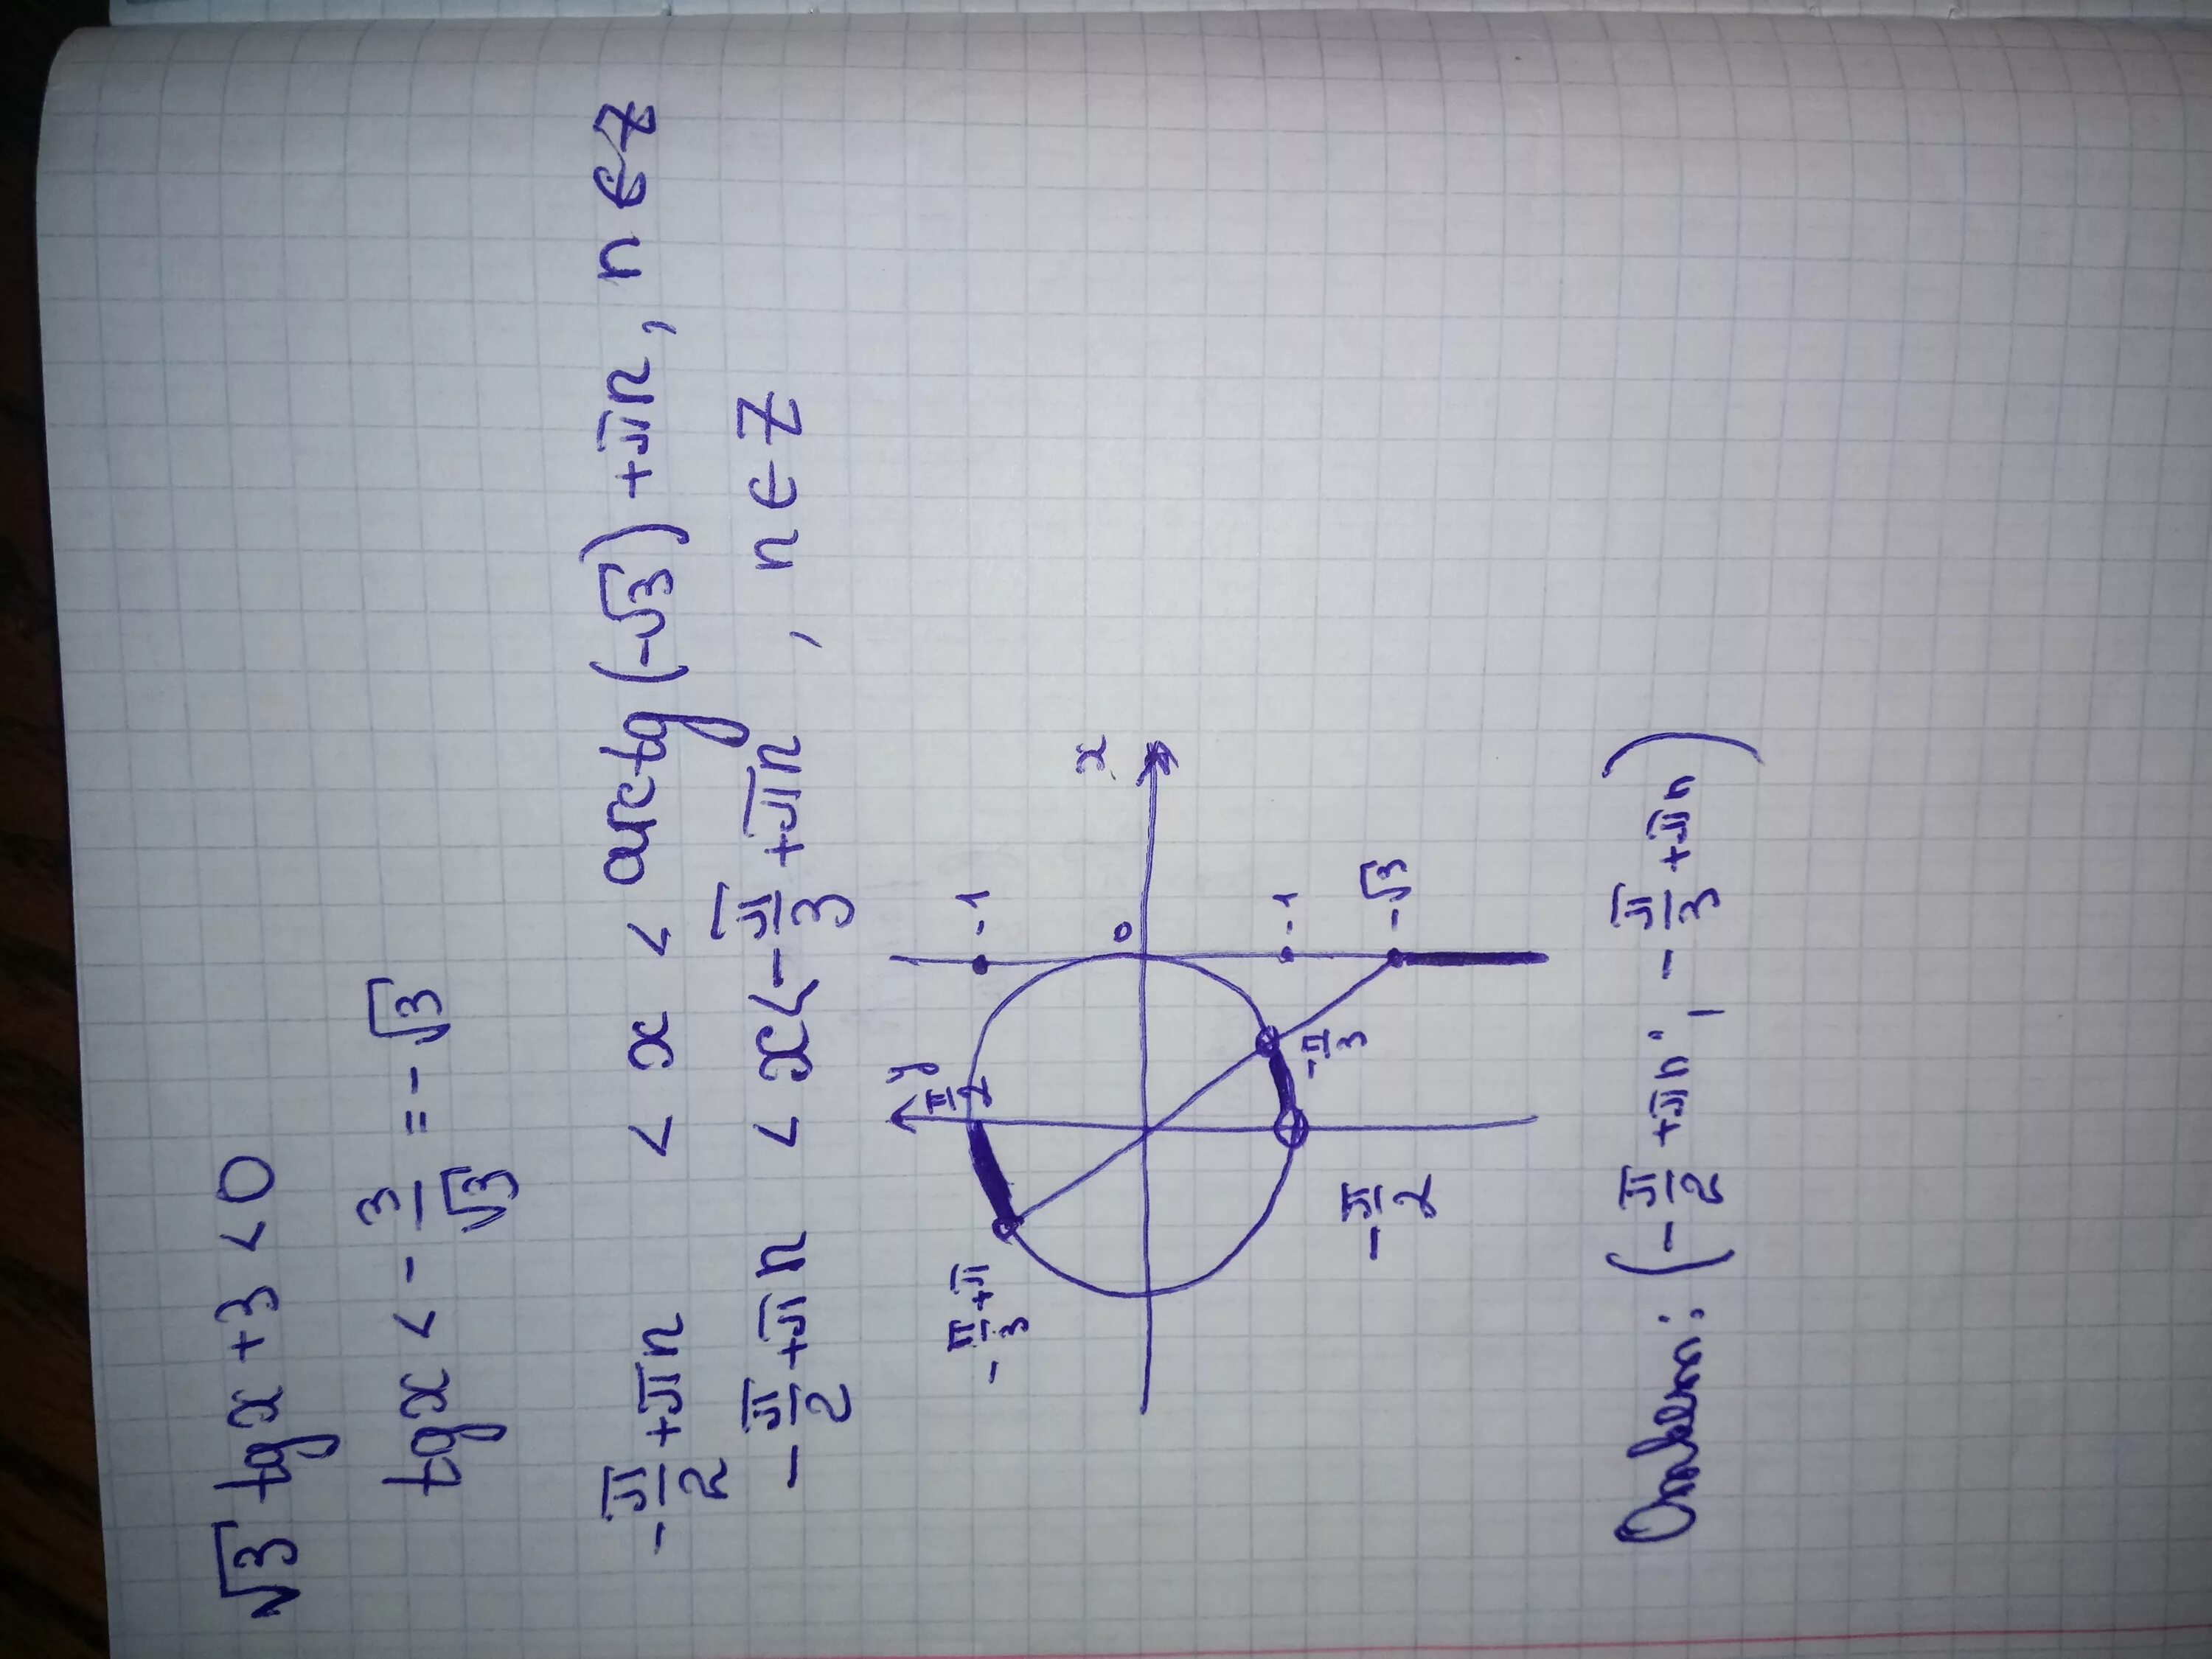 √3 tgx + 3 < 0
tgx < - 3/√3 = - √3
- π/2 + πn < x < arctg (-√3) + πn, n ∈ Z
- π/2 + πn < x < - π/3 + πn, n ∈ Z
y
π/2
-1
- π/3 + π
0
x
-1
- π/3
-√3
- π/2
Ответ: (- π/2 + πn; - π/3 + πn)